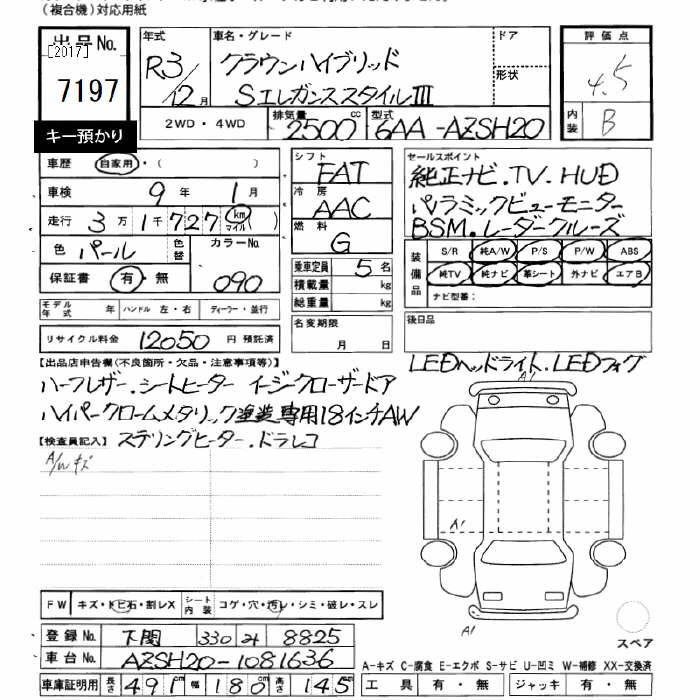 (複合機)対応用紙
出品No. [2017] 7197
キー預かり
年式 R3/12月
車名・グレード クラウンハイブリッド SエレガンススタイルⅢ
ドア
形状
評価点 4.5
内装 B
2WD・4WD 排気量 2500cc 型式 6AA-AZSH20
車歴 自家用・( )
車検 9年 1月
走行 3万1千727km マイル
色 パール 色替 カラーNo. 090
保証書 有・無
シフト FAT
冷房 AAC
燃料 G
乗車定員 5名
積載量 kg
総重量 kg
セールスポイント
純正ナビ.TV.HUD
パノラミックビューモニター
BSM.レーダークルーズ
装備品 S/R 純A/W P/S P/W ABS
純TV 純ナビ 革シート 外ナビ エアB
ナビ型番:
モデル年式 年 ハンドル 左・右 ディーラー・並行
リサイクル料金 12050円 預託済
名変期限 月 日
後日品
LEDヘッドライト.LEDフォグ
【出品店申告欄(不良箇所・欠品・注意事項等)】
ハーフレザー.シートヒーター イージークローザードア
ハイパークロームメタリック塗装専用18インチAW
【検査員記入】 ステリングヒーター.ドラレコ
A/Wキズ
A1
A1
A1
FW キズ・トビ石・割レX シート内装 コゲ・穴・汚レ・シミ・破レ・スレ
登録No. 下関 330 そ 8825
車台No. AZSH20-1081636
車庫証明用 長さ 491cm 幅 180cm 高さ 145cm
スペア
A-キズ C-腐食 E-エクボ S-サビ U-凹ミ W-補修 XX-交換済
工具 有・無 ジャッキ 有・無